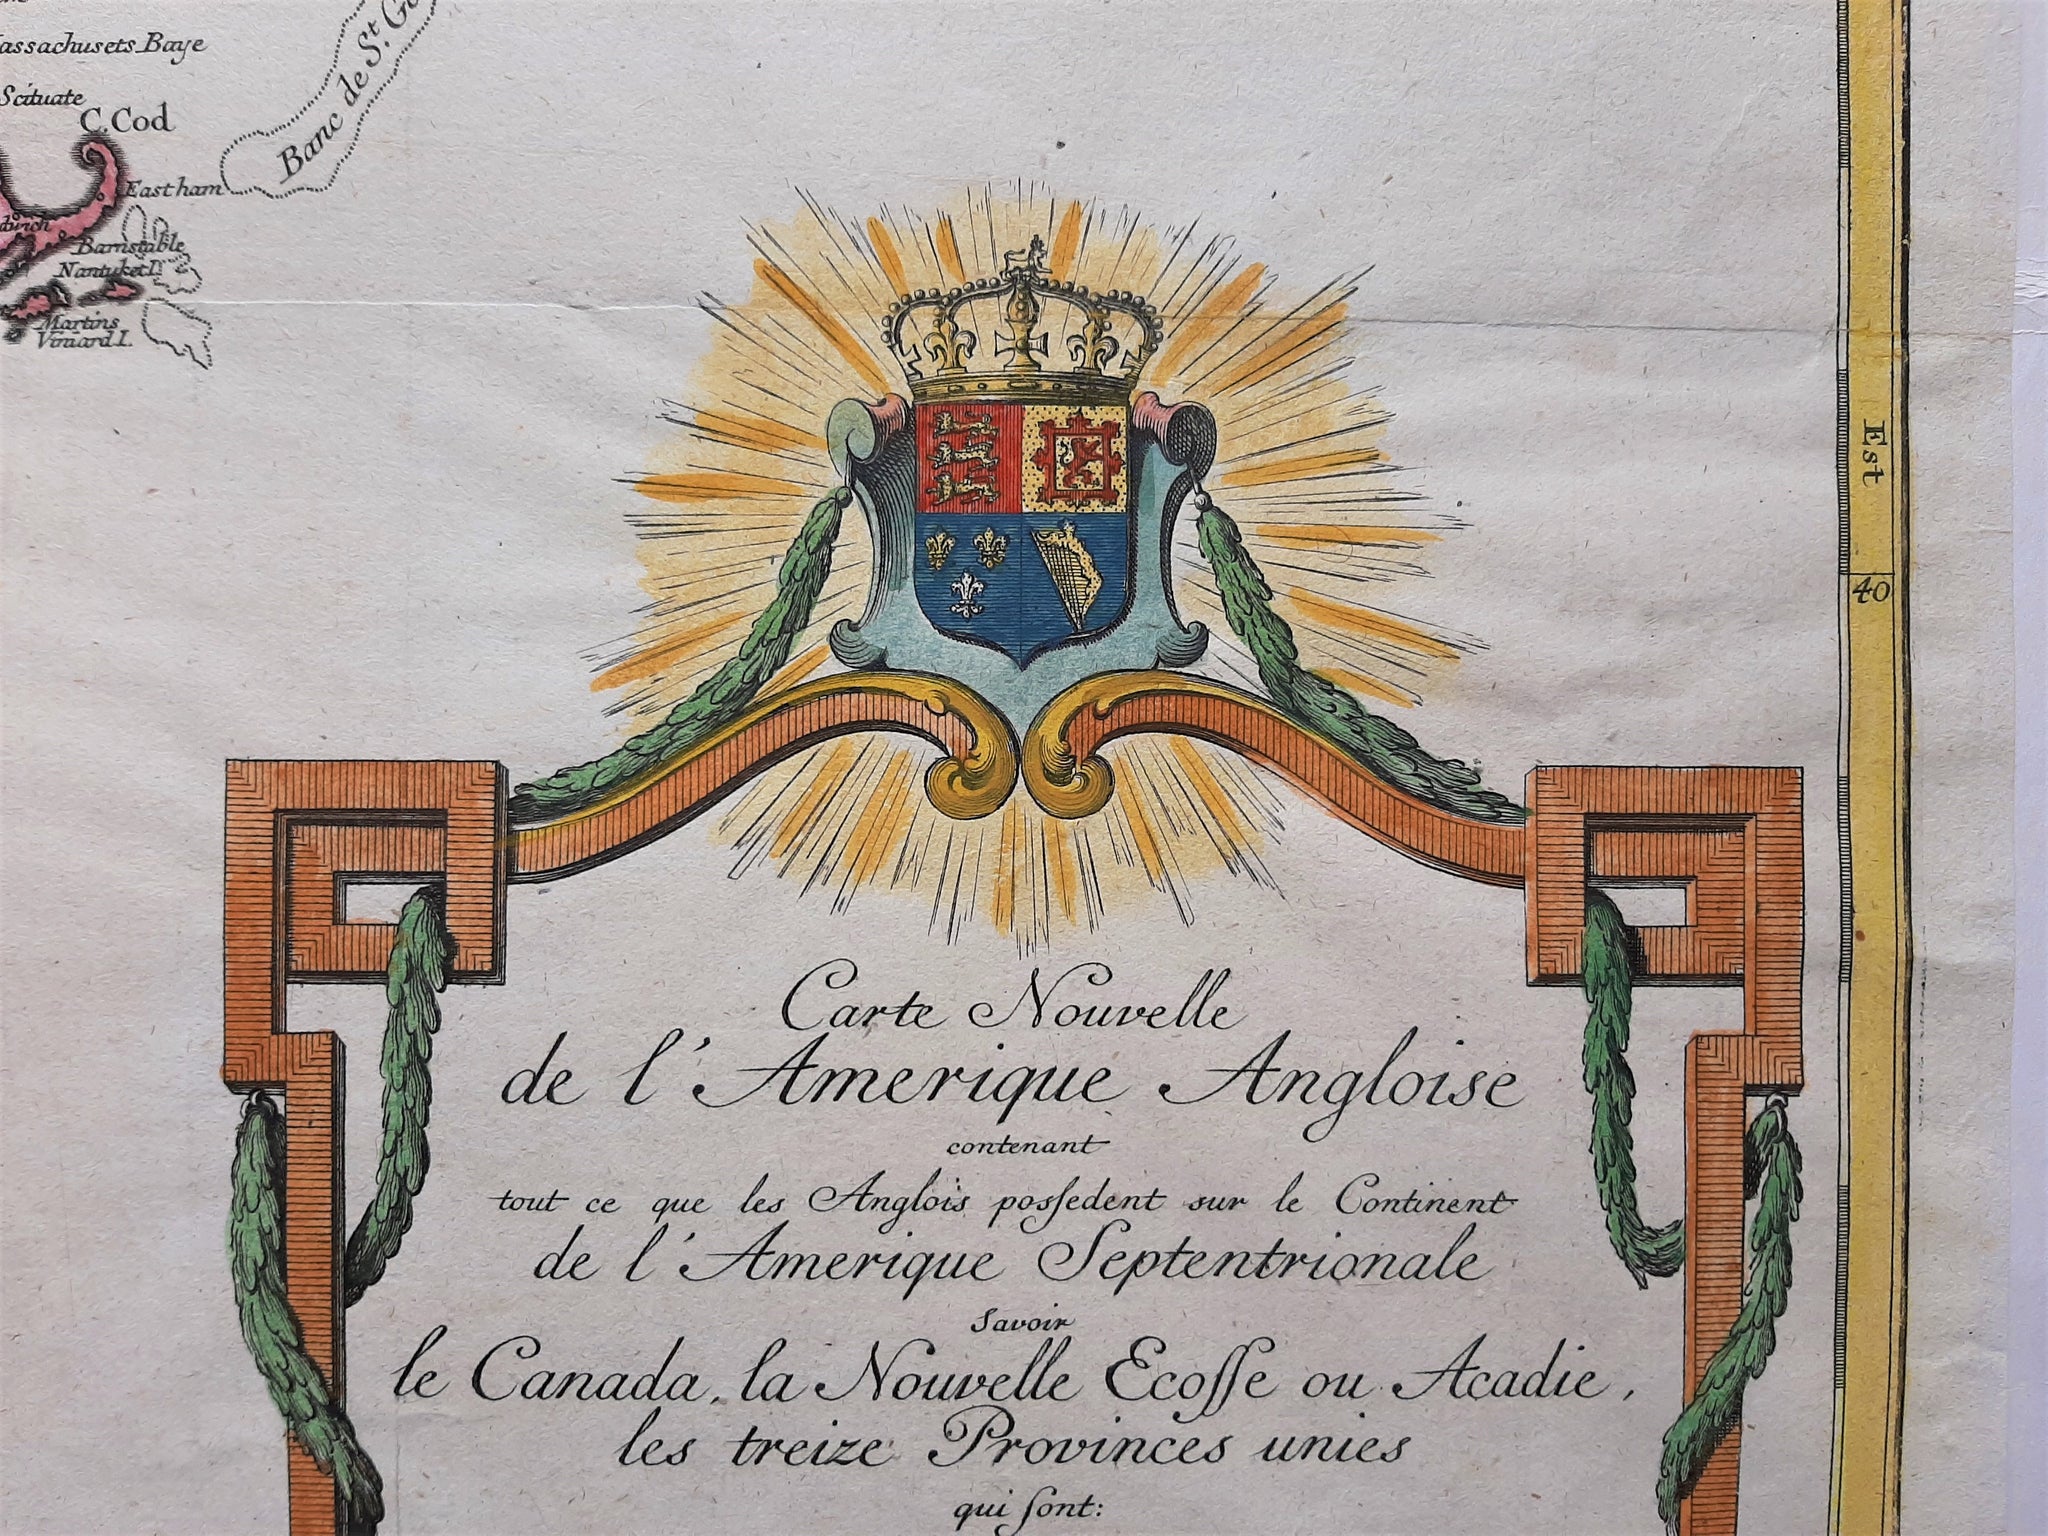 Massachusets Baye
Scituate
C. Cod
Banc de St. Ge
Eastham
dwich
Barnstable
Nantuket I.
Martins
Viniard I.
Est
40
Carte Nouvelle
de l'Amerique Angloise
contenant
tout ce que les Anglois possedent sur le Continent
de l'Amerique Septentrionale
savoir
le Canada, la Nouvelle Ecosse ou Acadie,
les treize Provinces unies
qui sont: